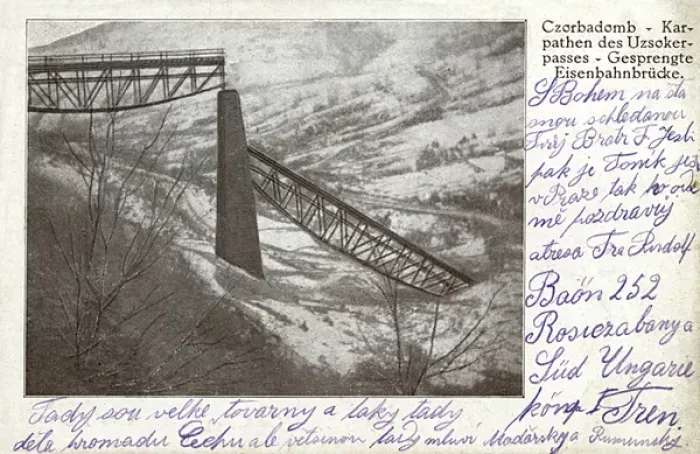 Czorbadomb - Kar-
pathen des Uzsoker-
passes - Gesprengte
Eisenbahnbrücke.
S Bohem na sta
rou schledanou
Tvůj Bratr F. Jesli
pak je Toník ješ
v Praze tak ho ode
mě pozdravuj
atresa Fra Rudolf
Baön 252
Rosiczabanya
Süd Ungarie
komp Tren
Tady sou velke tovarny a taky tady
děla hromadu Čechu ale větsinou tady mluvi Madărsky a Rumunsky